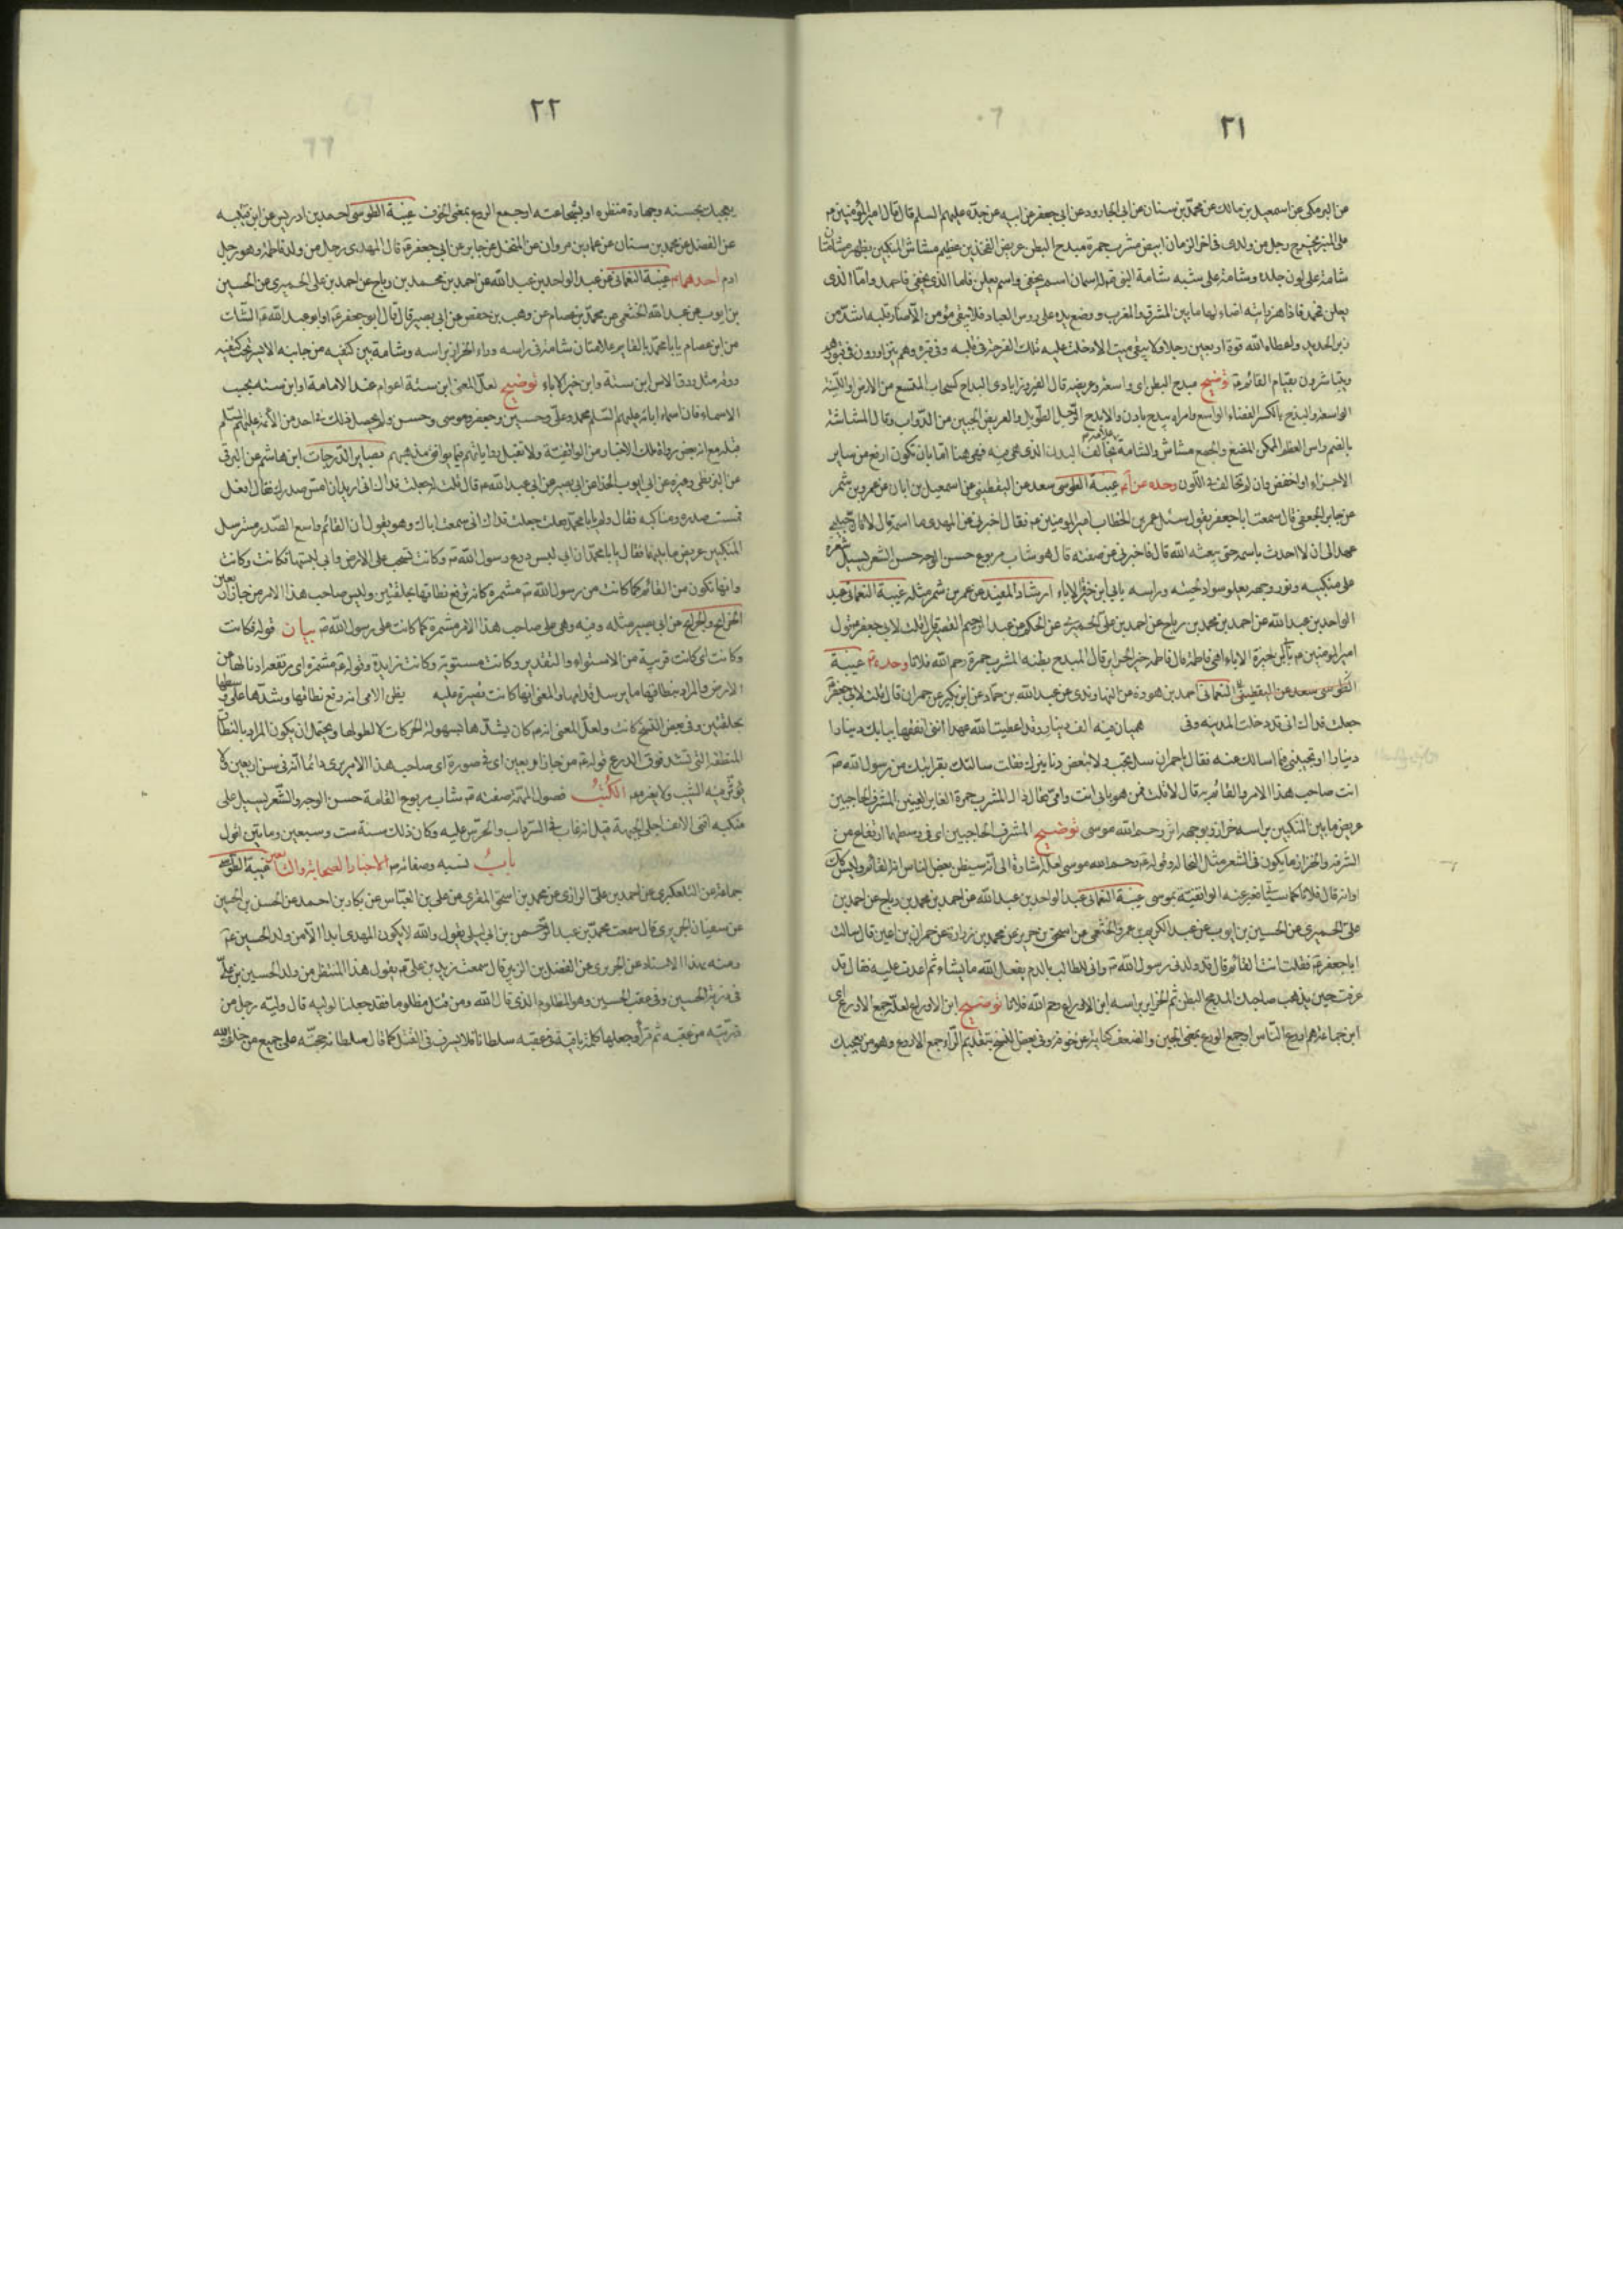 ٢١
من البرمكي عن اسمعيل بن مالك عن محمد بن سنان عن ابي الجارود عن ابي جعفر عن ابيه عن جده عليهم السلم قال قال امير المؤمنين م
على المنبر يخرج رجل من ولدى فى اخر الزمان ابيض مشرب حمرة مبدح البطن عريض الفخذين عظيم مشاش المنكبين بظهره شامتان
شامة على لون جلده وشامة على شبه شامة النبى ص له اسمان اسم يخفى واسم يعلن فاما الذى يخفى فاحمد واما الذى
يعلن فمحمد فاذا هز رايته اضاء لها ما بين المشرق والمغرب ووضع يده على رؤس العباد فلا يبقى مؤمن الا صار قلبه اشد من
زبر الحديد واعطاه الله قوة اربعين رجلا ولا يبقى ميت الا دخلت عليه تلك الفرحة فى قلبه وفى قبره وهم يتزاورون فى قبورهم
ويتباشرون بقيام القائم ع توضيح مبدح البطن اى واسعه وعريضه قال الفيروزابادى البداح كسحاب المتسع من الارض او اللينة
الواسعة والبدح بالكسر الفضاء الواسع وامراة بيدح بادن والابدح الرجل الطويل والعريض الجنبين من الدواب وقال المشاشة
بالضم راس العظم الممكن المضغ والجمع مشاش والشامة علامة تخالف البدن الذى هى فيه فهى هنا اما بان تكون ارفع من ساير
الاجزاء او اخفض وان لم تخالف فى اللون وحده عن ابيه غيبة الطوسى سعد عن اليقطينى عن اسمعيل بن ابان عن عمرو بن شمر
عن جابر الجعفى قال سمعت ابا جعفر يقول سئل عمر بن الخطاب امير المؤمنين م فقال اخبرنى عن المهدى ما اسمه قال اما اسمه فان حبيبى
عهد الى ان لا احدث باسمه حتى يبعثه الله قال فاخبرنى عن صفته قال هو شاب مربوع حسن الوجه حسن الشعر يسيل شعره
على منكبيه ونور وجهه يعلو سواد لحيته وراسه بابى ابن خيرة الاماء ارشاد المفيد عن عمر بن شمر مثله غيبة النعمانى عبد
الواحد بن عبد الله عن احمد بن محمد بن رباح عن احمد بن على الحميرى عن الحكم عن عبد الرحيم القصير قال قلت لابى جعفر قول
امير المؤمنين م بابى ابن خيرة الاماء اهى فاطمة قال فاطمة خير الحراير قال المبدح بطنه المشرب حمرة رحم الله فلانا وحده غيبة
الطوسى سعد عن اليقطينى النعمانى احمد بن هوذة عن النهاوندى عن عبد الله بن حماد عن ابن بكير عن حمران قال قلت لابى جعفر
جعلت فداك انى قد دخلت المدينة وفى هميان فيه الف دينار وقد اعطيت الله عهدا اننى انفقها ببابك دينارا
دينارا او تجيبنى فيما اسالك عنه فقال يا حمران سل تجب ولا تنفق دنانيرك فقلت سالتك بقرابتك من رسول الله ص
انت صاحب هذا الامر والقائم به قال لا قلت فمن هو بابى انت وامى فقال ذاك المشرب حمرة الغاير العينين المشرف الحاجبين
عريض ما بين المنكبين براسه حزاز وبوجهه اثر رحم الله موسى توضيح المشرف الحاجبين اى فى وسطهما ارتفاع من
الشرفة والحزاز ما يكون فى الشعر مثل النخالة وقوله ع رحم الله موسى لعله اشارة الى انه سيظن بعض الناس انه القائم وليس كذلك
او انه قال فلانا كما سياتى فعبر عنه الواقفية بموسى غيبة النعمانى عبد الواحد بن عبد الله عن احمد بن محمد بن رباح عن احمد بن
على الحميرى عن الحسين بن ايوب عن عبد الكريم بن عمرو الخثعمى عن اسحق بن جرير عن محمد بن زرارة عن حمران بن اعين قال سالت
ابا جعفر ع فقلت انت القائم قال قد ولدنى رسول الله ص وانى للطالب بالدم ويفعل الله ما يشاء ثم اعدت عليه فقال قد
عرفت حين يذهب صاحبك المدبح البطن ثم الحزاز براسه ابن الاوراع رحم الله فلانا توضيح ابن الاوراع لعله جمع الاورع اى
ابن جماعة هم اورع الناس او جمع الورع بمعنى الجبن والضعف كناية عن خوفه وفى بعض النسخ بتقديم الراء جمع الاروع وهو من يعجبك
٢٢
يعجبك بحسنه وجهارة منظره او بشجاعته او جمع الروع بمعنى الخوف غيبة الطوسى احمد بن ادريس عن ابن قتيبه
عن الفضل عن محمد بن سنان عن عمار بن مروان عن المنخل عن جابر عن ابى جعفر ع قال المهدى رجل من ولد فاطمة وهو رجل
ادم احدهما غيبة النعمانى عن عبد الواحد بن عبد الله عن احمد بن محمد بن رباح عن احمد بن على الحميرى عن الحسين
بن ايوب عن عبد الله الخثعمى عن محمد بن عصام عن وهب بن حفص عن ابى بصير قال قال ابو جعفر ع او ابو عبد الله ع الشك
من ابن عصام يا با محمد بالقايم علامتان شامة فى راسه وداء الحزاز براسه وشامة بين كتفيه من جانبه الايسر تحت كتفيه
ورقة مثل ورق الاس ابن ستة وابن خيرة الاماء توضيح لعل المعنى ابن ستة اعوام عند الامامة او ابن ستة بحسب
الاسماء فان اسماء ابائه عليهم السلم محمد وعلى وحسين وجعفر وموسى وحسن ولم يحصل ذلك فى احد من الائمة عليهم السلم
قبله مع ان بعض رواة تلك الاخبار من الواقفية ولا تقبل رواياتهم فيما يوافق مذهبهم بصاير الدرجات ابن هاشم عن البرقى
عن البزنطى وغيره عن ابى ايوب الحذاء عن ابى بصير عن ابى عبد الله ع قال قلت له جعلت فداك انى اريد ان امس صدرك فقال افعل
فمسست صدره ومناكبه فقال ولم يا با محمد فقلت جعلت فداك انى سمعت اباك وهو يقول ان القائم واسع الصدر مسترسل
المنكبين عريض ما بينهما فقال يا با محمد ان ابى لبس درع رسول الله ص وكانت تسحب على الارض وانى لبستها فكانت وكانت
وانها تكون من القائم كما كانت من رسول الله ص مشمرة كانه ترفع نطاقها بحلقتين وليس صاحب هذا الامر من جاز اربعين
الخرايج والجرايح عن ابى بصير مثله وفيه وهى على صاحب هذا الامر مشمرة كما كانت على رسول الله ص بيان قوله فكانت
وكانت اى كانت قريبة من الاستواء والتقدير وكانت مستوية وكانت زايدة وقوله ع مشمرة اى مرتفعة اذيالها عن
الارض والمراد بنطاقها ما يرسل قدامها والمعنى انها كانت قصيرة عليه يظن الامى انه رفع نطاقها وشدها على وسطها
بحلقتين وفى بعض النسخ كانت ولعل المعنى انه م كان يشدها لسهولة الحركات لا لطولها ويحتمل ان يكون المراد بالنطاق
المنطقة التى تشد فوق الدرع قوله ع من جاز اربعين اى فى صورة اى صاحب هذا الامر يرى دائما انه فى سن اربعين لا
يؤثر فيه الشيب ولا يغيره الكتب فصول المهمة صفته ع شاب مربوع القامة حسن الوجه والشعر يسيل على
منكبيه اقنى الانف اجلى الجبهة قيل انه غاب فى السرداب والحرس عليه وكان ذلك سنة ست وسبعين ومايتين اقول
باب نسبه وصفاته م الاخبار الصحابة والتابعين غيبة الطوسى
جماعة عن التلعكبرى عن احمد بن على الرازى عن محمد بن اسحق المقرى عن على بن العباس عن بكار بن احمد عن الحسن بن الحسين
عن سفيان الجريرى قال سمعت محمد بن عبد الرحمن بن ابى ليلى يقول والله لا يكون المهدى ابدا الا من ولد الحسين ع
ومنه بهذا الاسناد عن الجريرى عن الفضل بن الزبير قال سمعت زيد بن على ع يقول هذا المنتظر من ولد الحسين بن على
فى ذرية الحسين وفى عقب الحسين وهو المظلوم الذى قال الله ومن قتل مظلوما فقد جعلنا لوليه قال وليه رجل من
ذريته من عقبه ثم قرأ وجعلها كلمة باقية فى عقبه سلطانا فلا يسرف فى القتل كما قال سلطانه حجته على جميع من خلق الله